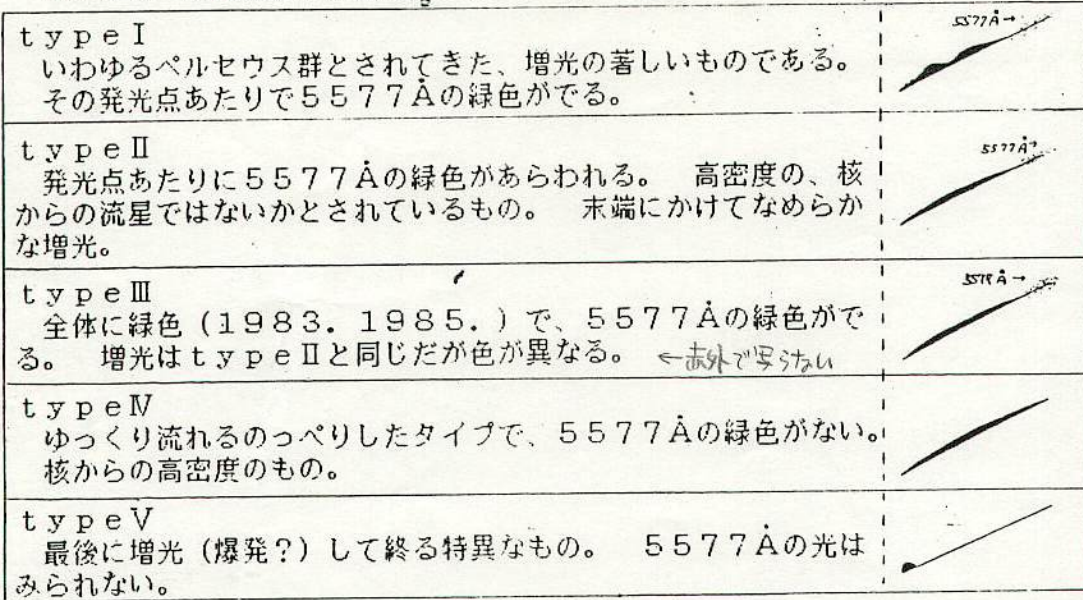 typeⅠ
いわゆるペルセウス群とされてきた、増光の著しいものである。
その発光点あたりで5577Åの緑色がでる。
5577Å→
typeⅡ
発光点あたりに5577Åの緑色があらわれる。 高密度の、核
からの流星ではないかとされているもの。 末端にかけてなめらか
な増光。
5577Å→
typeⅢ
全体に緑色(1983.1985.)で、5577Åの緑色がで
る。 増光はtypeⅡと同じだが色が異なる。 ←赤外で写らない
Å→
typeⅣ
ゆっくり流れるのっぺりしたタイプで、5577Åの緑色がない。
核からの高密度のもの。
typeⅤ
最後に増光(爆発?)して終る特異なもの。 5577Åの光は
みられない。